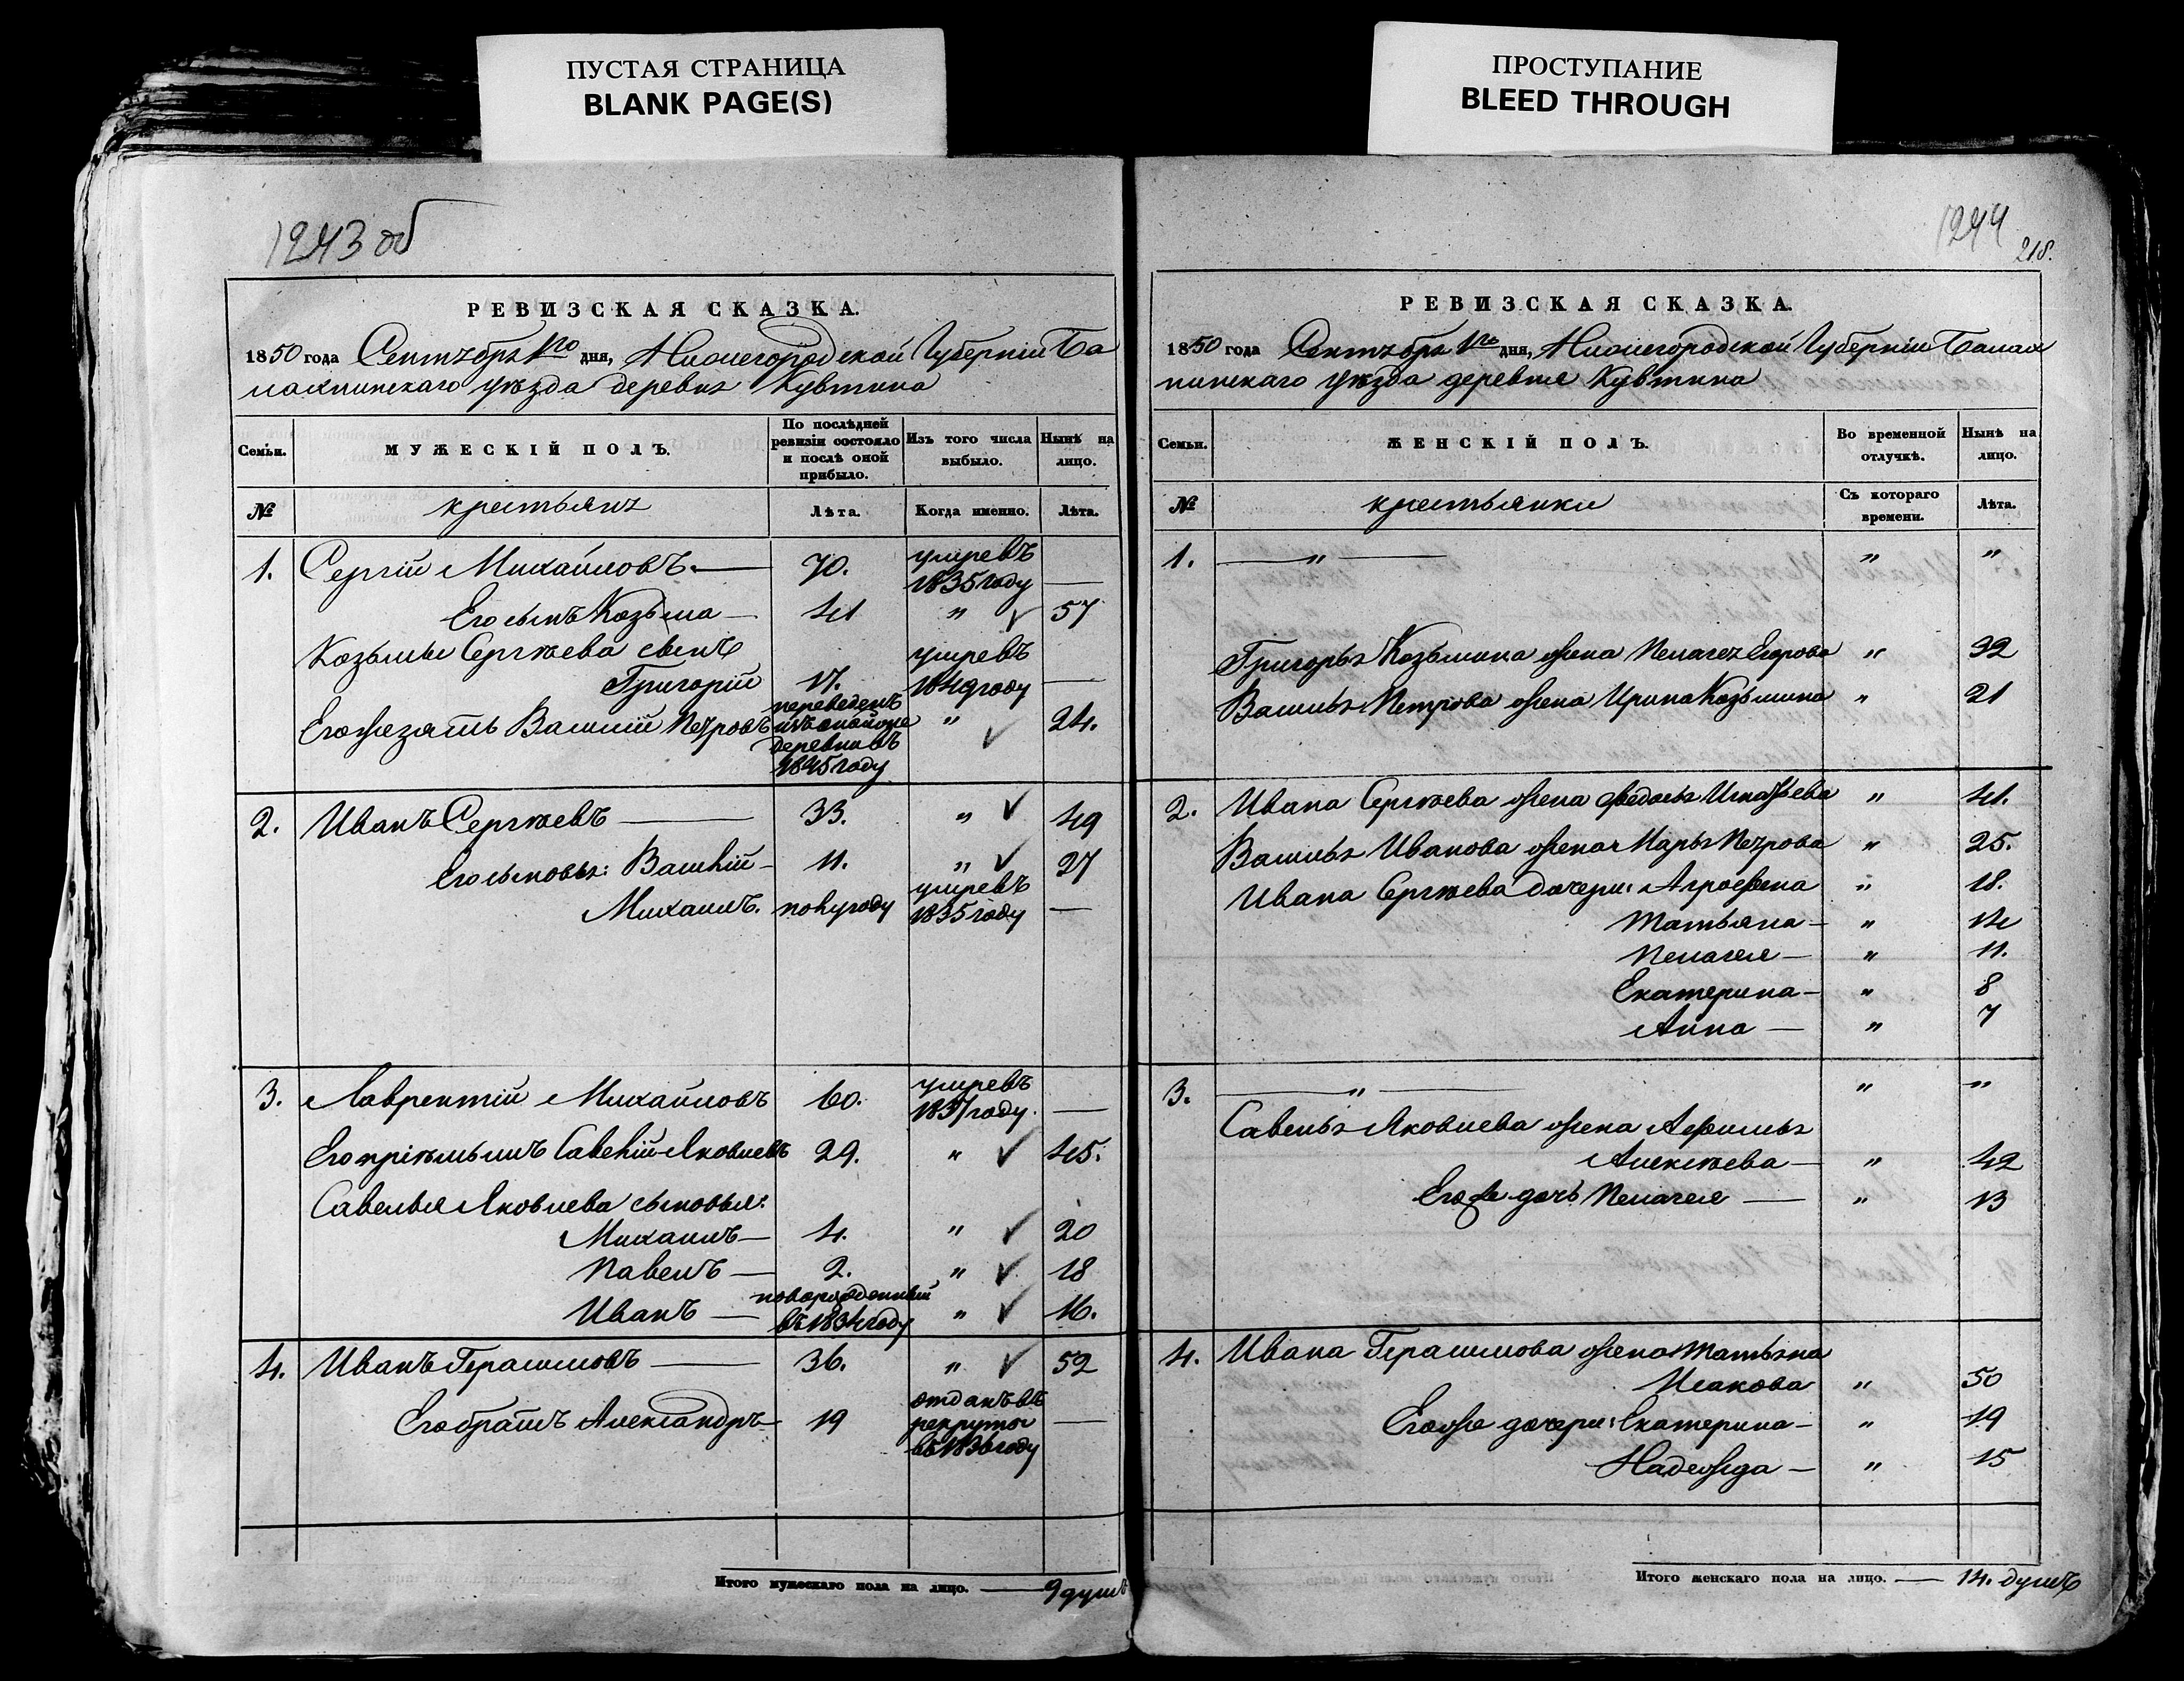 ПУСТАЯ СТРАНИЦА
BLANK PAGE(S)
ПРОСТУПАНИЕ
BLEED THROUGH
1243 об
РЕВИЗСКАЯ СКАЗКА.
1850 года Сентября 1го дня, Нижегородской Губернии Ба
лахнинскаго уѣзда деревня Кувшина
Семьи. МУЖЕСКІЙ ПОЛЪ. По послѣдней ревизіи состояло и послѣ оной прибыло. Изъ того числа выбыло. Нынѣ на лицо.
№ крестьяне Лѣта. Когда именно. Лѣта.
1. Сергій Михайловъ 70. умревъ 1835 году —
Его сынъ Козьма 41 " 57
Козьмы Сергѣева сынъ
Григорій 17. умревъ 1849 году —
Его же зять Василій Петровъ переведенъ деревни въ 1845 году " 24.
2. Иванъ Сергѣевъ 33. " 49
Его сыновья: Василій 11. " 27
Михаилъ. полугоду умревъ 1835 году —
3. Лаврентій Михайловъ 60. умревъ 1837 году. —
Его пріемышъ Савелій Яковлевъ 29. " 45.
Савелья Яковлева сыновья:
Михаилъ 4. " 20
Павелъ 2. " 18
Иванъ новорожденный въ 1834 году " 16.
4. Иванъ Герасимовъ 36. " 52
Его братъ Александръ 19 отданъ въ рекруты въ 1836 году —
Итого мужескаго пола на лицо. — 9 душъ
1244
218.
РЕВИЗСКАЯ СКАЗКА.
1850 года Сентября 1го дня, Нижегородской Губерніи Балах
нинскаго уѣзда деревне Кувшина
Семьи. ЖЕНСКІЙ ПОЛЪ. Во временной отлучкѣ. Нынѣ на лицо.
№ крестьянки Съ котораго времени. Лѣта.
1. " " "
Григорья Козьмина жена Пелагея Егорова " 32
Василья Петрова жена Ирина Козьмина " 21
2. Ивана Сергѣева жена Федосья Игнатьева " 41.
Василья Иванова жена Марья Петрова " 25.
Ивана Сергѣева дочери: Агрофена " 18.
Татьяна " 14
Пелагея " 11.
Екатерина " 8
Анна " 7
3. " " "
Савелья Яковлева жена Афимья
Алексѣева " 42
Его же дочь Пелагея " 13
4. Ивана Герасимова жена Татьяна
Исакова " 50
Его же дочери: Екатерина " 19
Надежда " 15
Итого женскаго пола на лицо. — 14. душъ